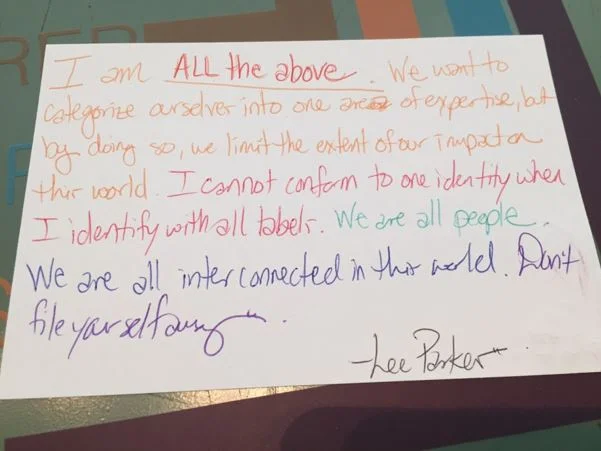 I am ALL the above. We want to
categorize ourselves into one area of expertise, but
by doing so, we limit the extent of our impact on
this world. I cannot conform to one identity when
I identify with all labels. We are all people.
We are all interconnected in this world. Don't
file yourself away.
-Lee Parker